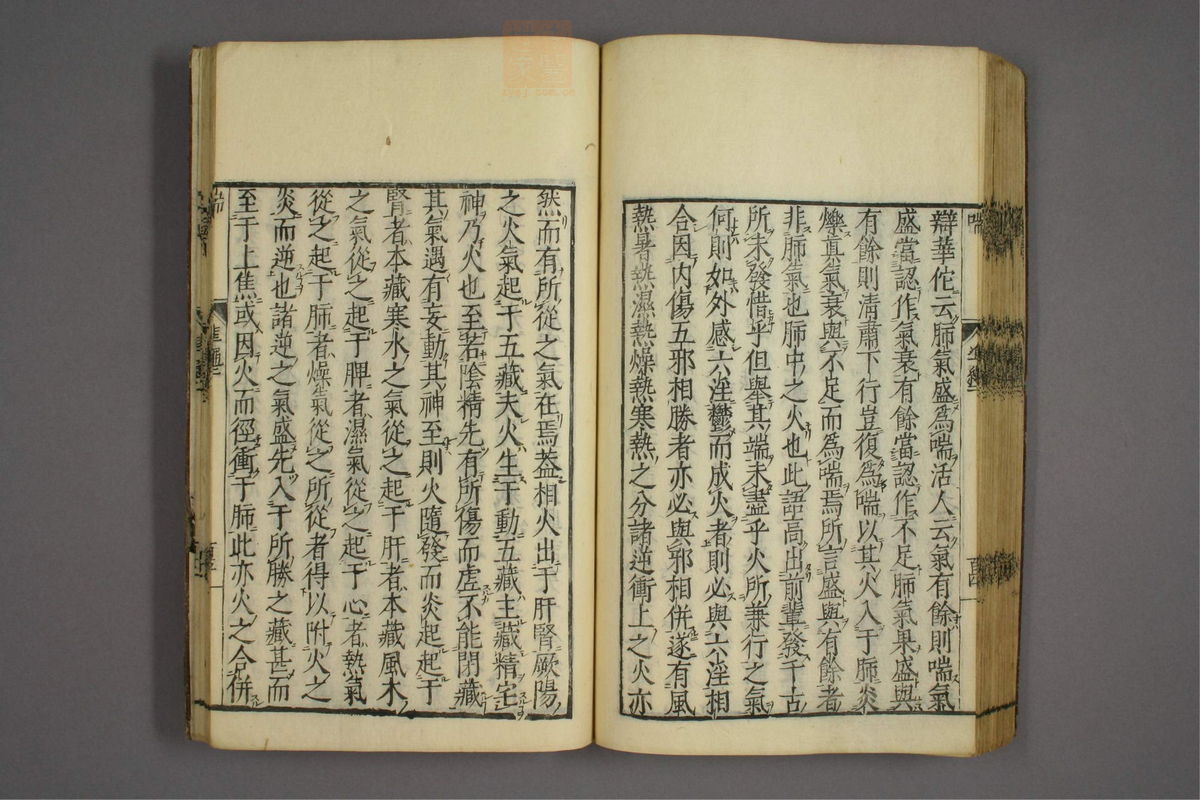 辯華佗云肺氣盛爲喘活人云氣有餘則喘氣
盛當認作氣衰有餘當認作不足肺氣果盛與
有餘則清肅下行豈復爲喘以其火入于肺炎
爍真氣衰與不足而爲喘焉所言盛與有餘者
非肺氣也肺中之火也此語高出前輩發千古
所未發惜乎但舉其端未盡乎火所兼行之氣
何則如外感六淫鬱而成火者則必與六淫相
合因内傷五邪相勝者亦必與邪相併遂有風
熱暑熱濕熱燥熱寒熱之分諸逆衝上之火亦
然而有所從之氣在焉葢相火出于肝腎厥陽
之火氣起于五藏夫火生于動五藏主藏精宅
神乃火也至若陰精先有所傷而虛不能閉藏
其氣遇有妄動其神至則火隨發而炎起起于
腎者本藏寒水之氣從之起于肝者本藏風木
之氣從之起于脾者濕氣從之起于心者熱氣
從之起于肺者燥氣從之所從者得以附火之
炎而逆也諸逆之氣盛先入于所勝之藏甚而
至于上焦或因火而徑衝于肺此亦火之合併